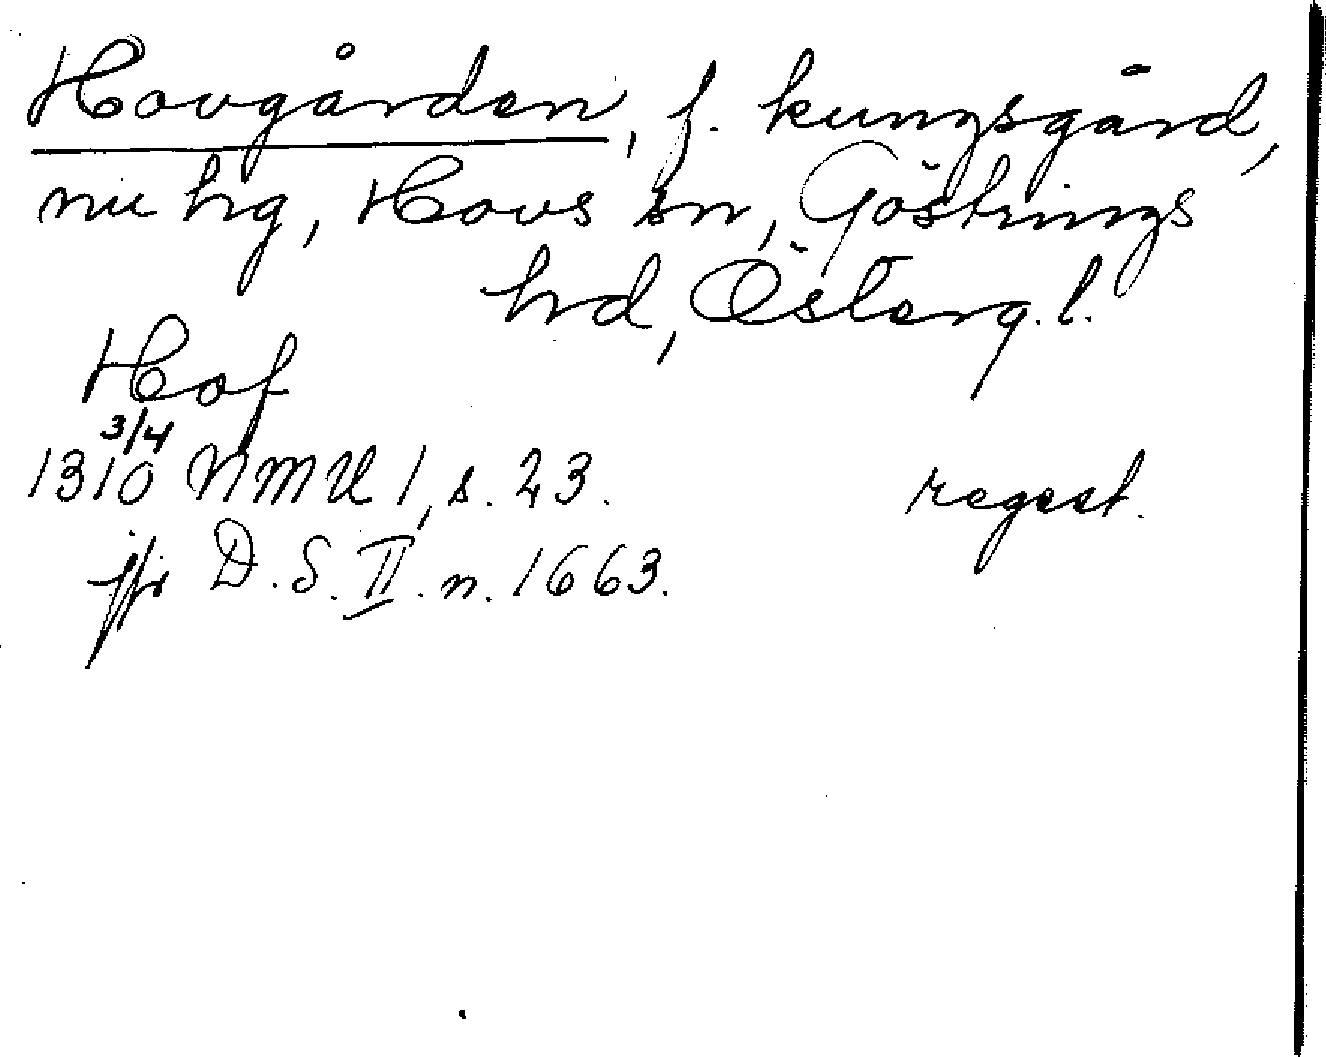 Hovgården, f. kungsgård,
nu hg, Hovs sn, Göstrings
hd, Österg. l.
Hof
3/4
1310 NMU 1, s. 23. regest.
jfr D. S. II. n. 1663.